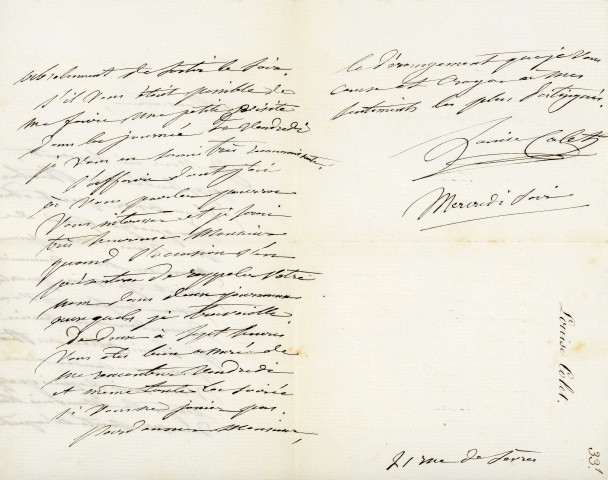 absolument de sortir le soir.
s'il vous était possible de
me faire une petite visite
dans la journée de Vendredi
je vous en serai très reconnaissante.
L'affaire dont j'ai
à vous parler pourra
vous intéresser et je serai
très heureuse Monsieur
quand l'occasion s'en
présentera de rappeler votre
nom dans deux journaux
auxquels je travaille
De deux à sept heures
vous êtes bien assuré de
me rencontrer Vendredi
et même toute la soirée
si vous ne pas.
Pardonnez Monsieur,
le dérangement que je vous
cause et croyez à mes
sentiments les plus distingués.
Louise Colet
Mercredi soir
21 rue de Sèvres
Louise Colet.
331